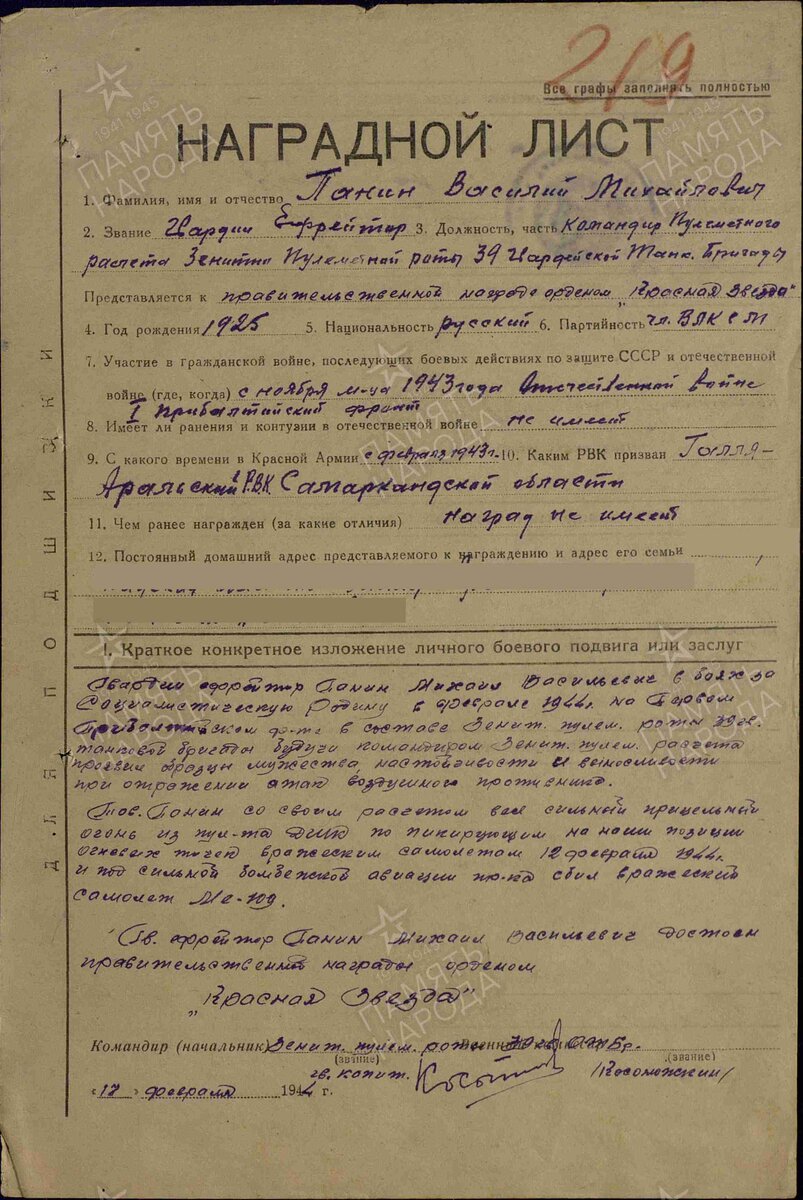 219
Все графы заполнять полностью
НАГРАДНОЙ ЛИСТ
1. Фамилия, имя и отчество Панин Василий Михайлович
2. Звание Гвардии Ефрейтор 3. Должность, часть Командир Пулеметного
расчета Зенитно Пулеметной роты 39 Гвардейской Танк. Бригады
Представляется к правительственной награде орденом "Красная Звезда"
4. Год рождения 1925 5. Национальность русский 6. Партийность чл. ВЛКСМ
7. Участие в гражданской войне, последующих боевых действиях по защите СССР и отечественной
войне (где, когда) с ноября м-ца 1943 года Отечественной войне
I Прибалтийский фронт
8. Имеет ли ранения и контузии в отечественной войне не имеет
9. С какого времени в Красной Армии с февраля 1943 г. 10. Каким РВК призван Галля-
Аральский РВК Самаркандской области
11. Чем ранее награжден (за какие отличия) наград не имеет
12. Постоянный домашний адрес представляемого к награждению и адрес его семьи
I. Краткое конкретное изложение личного боевого подвига или заслуг
Гвардии ефрейтор Панин Михаил Васильевич в боях за
Социалистическую Родину в феврале 1944г. на Первом
Прибалтийском ф-те в составе Зенит. пулем. роты 39 гв.
танковой бригады будучи командиром Зенит. пулем. расчета
проявил образцы мужества, настойчивости и выносливости
при отражении атак воздушного противника.
Тов. Панин со своим расчетом вел сильный прицельный
огонь из пул-та ДШК по пикирующим на наши позиции
огневых точек вражеским самолетам 12 февраля 1944г.
и под сильной бомбежкой авиации пр-ка сбил вражеский
самолет Ме-109.
Гв. ефрейтор Панин Михаил Васильевич достоен
правительственной награды орденом
"Красная Звезда"
Командир (начальник) Зенит. пулем. роты 39 гв. ОТБр.
(звание) (звание)
гв. капит. /Косоложкин/
«17» февраля 1944 г.
ДЛЯ ПОДШИВКИ
1941 1945
ПАМЯТЬ НАРОДА